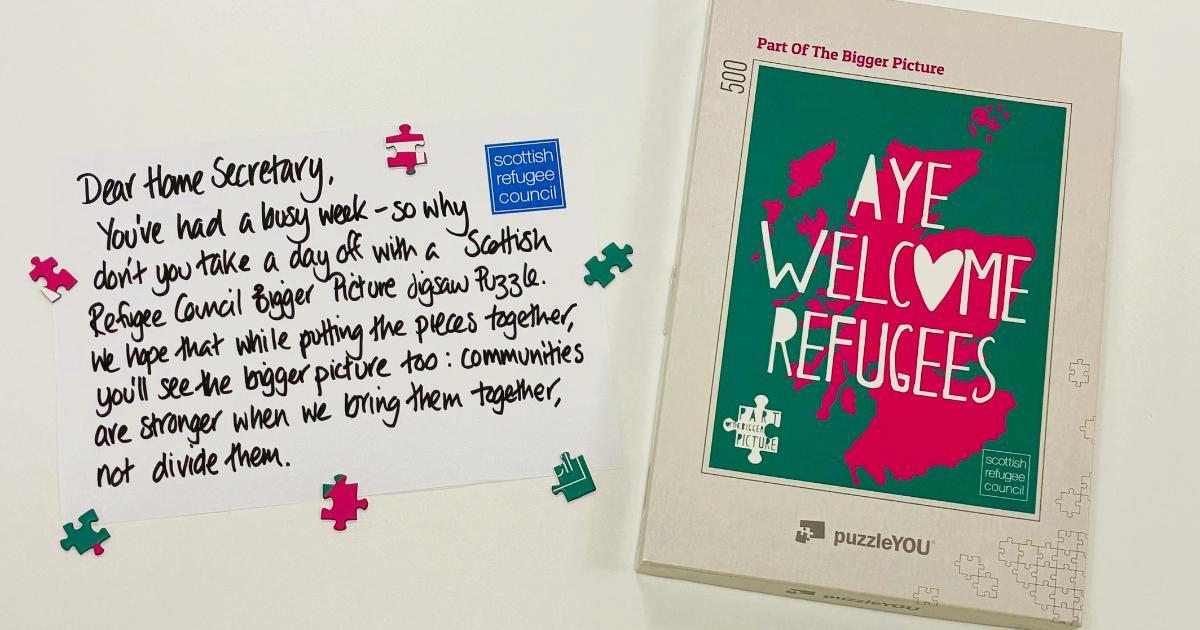 Dear Home Secretary,
You've had a busy week - so why
don't you take a day off with a Scottish
Refugee Council Bigger Picture jigsaw Puzzle.
We hope that while putting the pieces together,
you'll see the bigger picture too: communities
are stronger when we bring them together,
not divide them.
scottish
refugee
council
Part Of The Bigger Picture
500
AYE
WELCOME
REFUGEES
PART
OF THE BIGGER
PICTURE
scottish
refugee
council
puzzleYOU
puzzleYOU